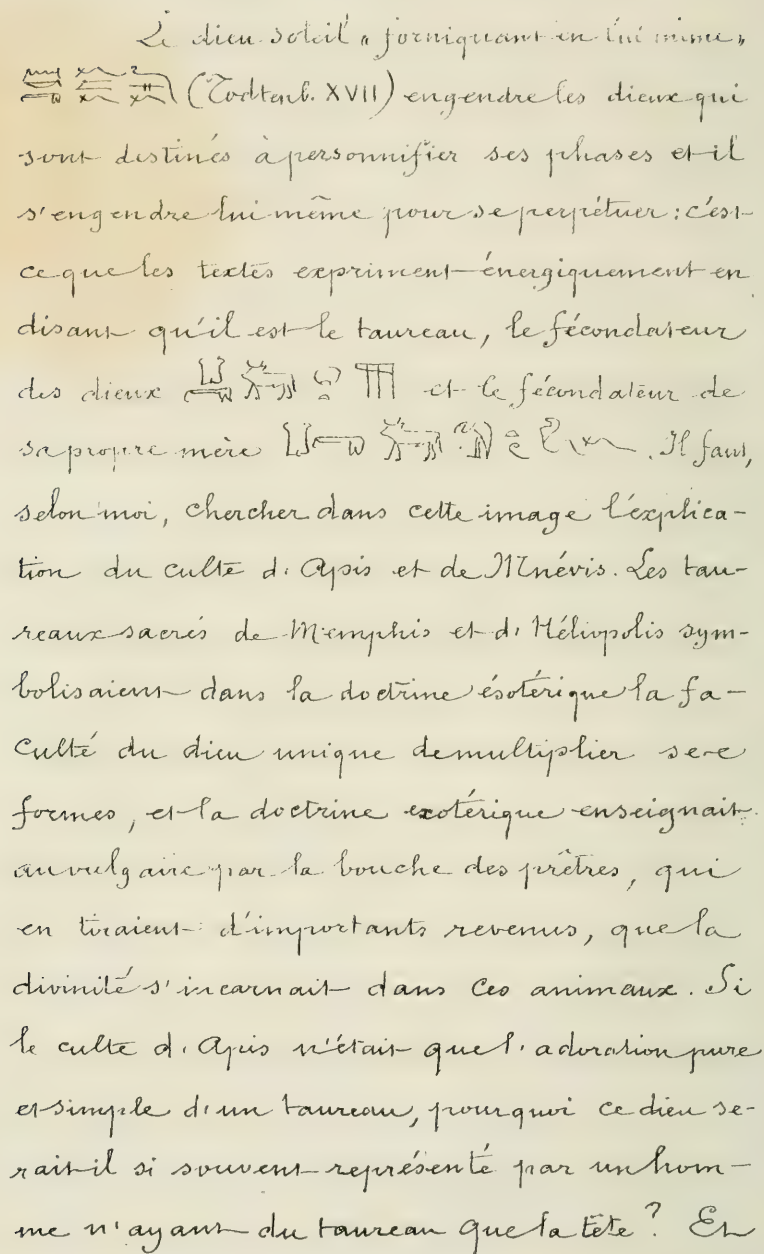 Le dieu soleil „ forniquant en lui même „
(Todtenb. XVII) engendre les dieux qui
sont destinés à personnifier ses phases et il
s'engendre lui même pour se perpétuer : c'est
ce que les textes expriment énergiquement en
disant qu'il est le taureau, le fécondateur
des dieux et le fécondateur de
sa propre mère . Il faut,
selon moi, chercher dans cette image l'explica-
tion du culte d'Apis et de Mnévis. Les tau-
reaux sacrés de Memphis et d'Héliopolis sym-
bolisaient dans la doctrine ésotérique la fa-
culté du dieu unique de multiplier ses
formes, et la doctrine exotérique enseignait
au vulgaire par la bouche des prêtres, qui
en tiraient d'importants revenus, que la
divinité s'incarnait dans ces animaux. Si
le culte d'Apis n'était que l'adoration pure
et simple d'un taureau, pourquoi ce dieu se-
rait-il si souvent représenté par un hom-
me n'ayant du taureau que la tête ? Et